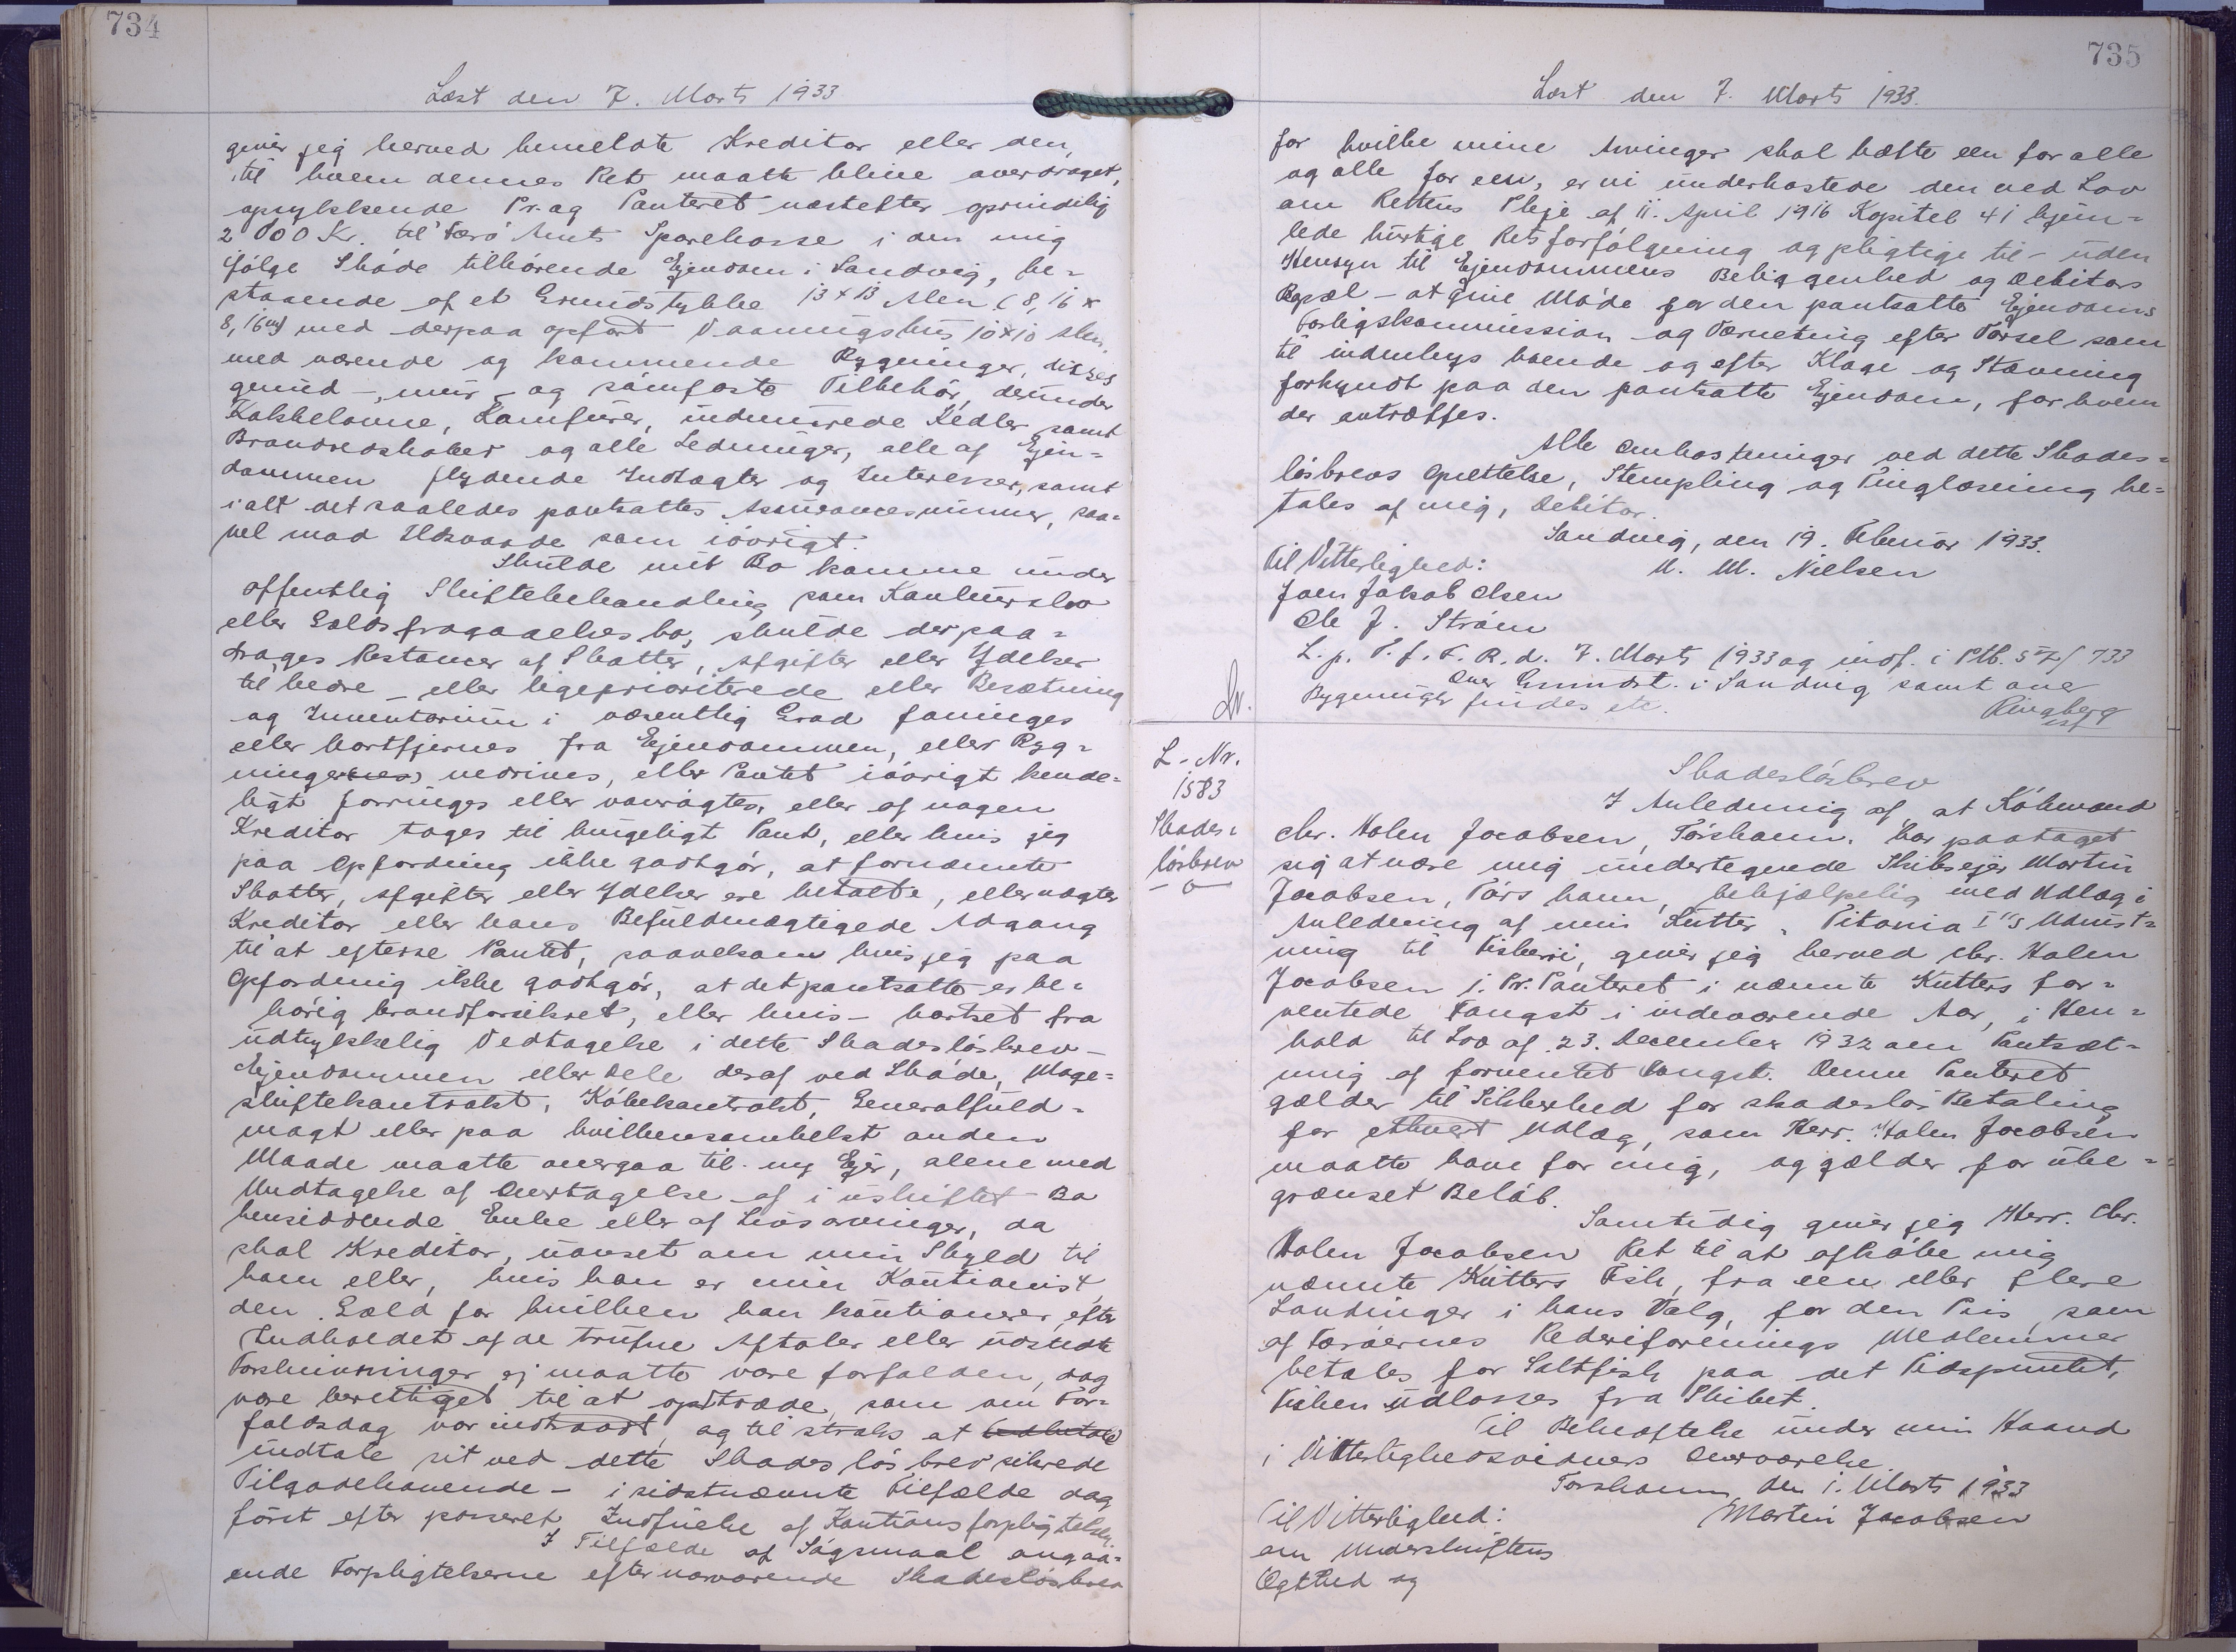 734
Læst den 7. Marts 1933
giver jeg herved bemeldte Kreditor eller den,
til hvem dennes Ret maatte blive overdraget,
oprykkende Pr. og Panteret næstefter oprindelig
2000 Kr. til Færø Amts Sparekasse i den mig
ifølge Skøde tilhørende Ejendom i Sandvig, be-
staaende af et Grundstykke 13 x 13 Alen (8,16 x
8,16 m) med derpaa opført Vaaningshus 10 x 10 Alen,
med værende og kommende Bygninger, disses
grund-, mur- og sømfaste Tilbehør, derunder
Kakkelovne, Komfurer, indmurede Kedler samt
Brandredskaber og alle Ledninger, alle af Ejen-
dommen flydende Indtægter og Interesser, samt
i alt det saaledes pantsattes Assurancesummer, saa-
vel mod Ildsvaade som iøvrigt.
Skulde mit Bo komme under
offentlig Skiftebehandling som Konkursbo
eller Gældsfragaaelsesbo, skulde der paa-
drages Restancer af Skatter, Afgifter eller Ydelser
til bedre- eller ligeprioriterede eller Besætning
og Inventarium i væsentlig Grad forringes
eller bortfjernes fra Ejendommen, eller Byg-
ninger nedrives, eller Pantet iøvrigt kende-
ligt forringes eller vanrøgtes eller af nogen
Kreditor tages til brugeligt Pant, eller hvis jeg
paa Opfordring ikke godtgør, at fornævnte
Skatter, Afgifter eller Ydelser ere betalte, eller nægter
Kreditor eller hans Befuldmægtigede Adgang
til at efterse Pantet, saavelsom hvis jeg paa
Opfordring ikke godtgør, at det pantsatte er be-
hørig brandforsikret, eller hvis - bortset fra
udtrykkelig Vedtagelse i dette Skadesløsbrev -
Ejendommen eller Dele deraf ved Skøde, Mage-
skiftekontrakt, Købekontrakt, Generalfuld-
magt eller paa hvilkensomhelst anden
Maade maatte overgaa til ny Ejer, alene med
Undtagelse af Overtagelse af i uskiftet Bo
hensiddende Enke eller af Livsarvinger, da
skal Kreditor, uanset om min Skyld til
ham eller, hvis han er min Kautionist,
den Gæld for hvilken han kautionerer, efter
Indholdet af de trufne Aftaler eller udstedte
Forskrivninger ej maatte være forfalden, dog
være berettiget til at optræde, som om For-
faldsdag var indtraadt, og til straks at
indtale sit ved dette Skadesløsbrev sikrede
Tilgodehavende - i sidstnævnte Tilfælde dog
først efter passeret Indfrielse af Kautionsforpligtelsen.
I Tilfælde af Søgsmaal angaa-
ende Forpligtelserne efter nærværende Skadesløsbrev
735
Læst den 7. Marts 1933.
for hvilke mine Arvinger skal hæfte een for alle
og alle for een, er vi underkastede den ved Lov
om Rettens Pleje af 11. April 1916 Kapitel 41 hjem-
lede hurtige Retsforfølgning og pligtige til - uden
Hensyn til Ejendommens Beliggenhed og Debitors
Bopæl - at give Møde for den pantsatte Ejendoms
Forligskommission og Værneting efter Varsel som
til indenbys boende og efter Klage og Stævning
forkyndt paa den pantsatte Ejendom, for hvem
der antræffes.
Alle Omkostninger ved dette Skades-
løsbrevs Oprettelse, Stempling og Tinglæsning be-
tales af mig, Debitor.
Sandvig, den 19. Februar 1933.
Til Vitterlighed: M. M. Nielsen
Joen Jakob Olsen
Ole J. Strøm
L. p. T. f. F. R. d. 7. Marts 1933 og indf. i Ptb. 57/733
Over Grundst. i Sandvig samt over
Bygninger findes etc. Ringberg
esf
L. Nr.
1583
Skades-
løsbrev
Skadesløsbrev
I Anledning af at Købmand
Chr. Holm Jacobsen, Tórshavn, har paataget
sig at være mig undertegnede Skibsejer Martin
Jacobsen, Tórshavn, behjælpelig med Udlæg i
Anledning af min Kutter "Titania I"s Udrust-
ning til Fiskeri, giver jeg herved Chr. Holm
Jacobsen 1. Pr. Panteret i nævnte Kutters for-
ventede Fangst i indeværende Aar, i Hen-
hold til Lov af 23. December 1932 om Pantsæt-
ning af forventet Fangst. Denne Panteret
gælder til Sikkerhed for skadesløs Betaling
for ethvert Udlæg, som Herr. Holm Jacobsen
maatte have for mig, og gælder for ube-
grænset Beløb.
Samtidig giver jeg Herr. Chr.
Holm Jacobsen Ret til at afkøbe mig
nævnte Kutters Fisk, fra een eller flere
Landinger i hans Valg, for den Pris, som
af Færøernes Rederiforenings Medlemmer
betales for Saltfisk paa det Tidspunkt,
Fisken udlosses fra Skibet.
Til Bekræftelse under min Haand
i Vitterlighedsvidners Overværelse.
Torshavn, den 1. Marts 1933
Til Vitterlighed: Martin Jacobsen
om Underskriftens
Ægthed og